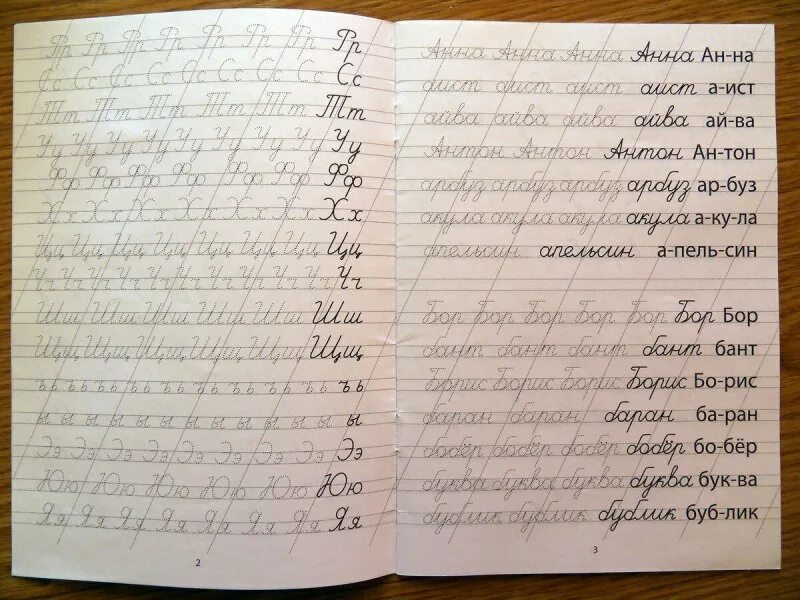 Рр Рр Рр Рр Рр Рр Рр Рр
Сс Сс Сс Сс Сс Сс Сс Сс Сс
Тт Тт Тт Тт Тт Тт
Уу Уу Уу Уу Уу Уу Уу Уу Уу
Фф Фф Фф Фф Фф Фф Фф
Хх Хх Хх Хх Хх Хх Хх
Цц Цц Цц Цц Цц Цц Цц
Чч Чч Чч Чч Чч Чч Чч Чч Чч Чч Чч
Шш Шш Шш Шш Шш Шш
Щщ Щщ Щщ Щщ Щщ Щщ
ъь ъь ъь ъь ъь ъь ъь ъь ъь ъь
ы ы ы ы ы ы ы ы ы ы ы ы
Ээ Ээ Ээ Ээ Ээ Ээ Ээ Ээ Ээ
Юю Юю Юю Юю Юю Юю
Яя Яя Яя Яя Яя Яя Яя Яя
2
Анна Анна Анна Анна Ан-на
аист аист аист аист а-ист
айва айва айва айва ай-ва
Антон Антон Антон Ан-тон
арбуз арбуз арбуз арбуз ар-буз
акула акула акула акула а-ку-ла
апельсин апельсин а-пель-син
Бор Бор Бор Бор Бор Бор Бор
бант бант бант бант бант
Борис Борис Борис Борис Бо-рис
баран баран баран ба-ран
бобёр бобёр бобёр бобёр бо-бёр
буква буква буква буква бук-ва
бублик бублик бублик буб-лик
3